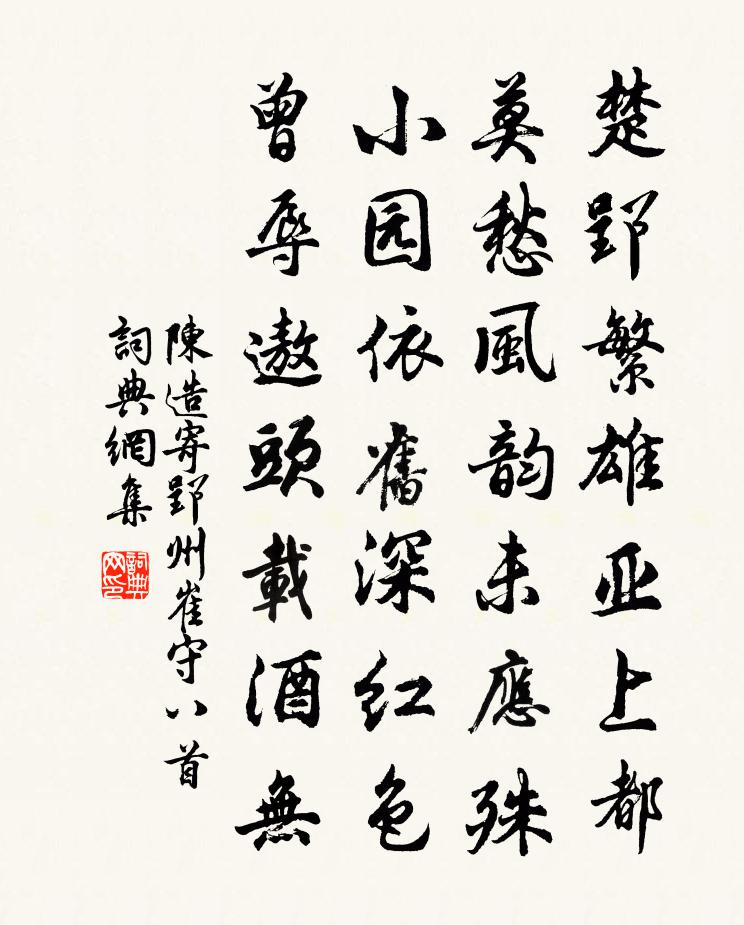 楚郢繁雄亚上都
莫愁風韵未應殊
小园依舊深红色
曾辱遨頭載酒無
陳造寄郢州崔守八首
詞典網集
詞典网印